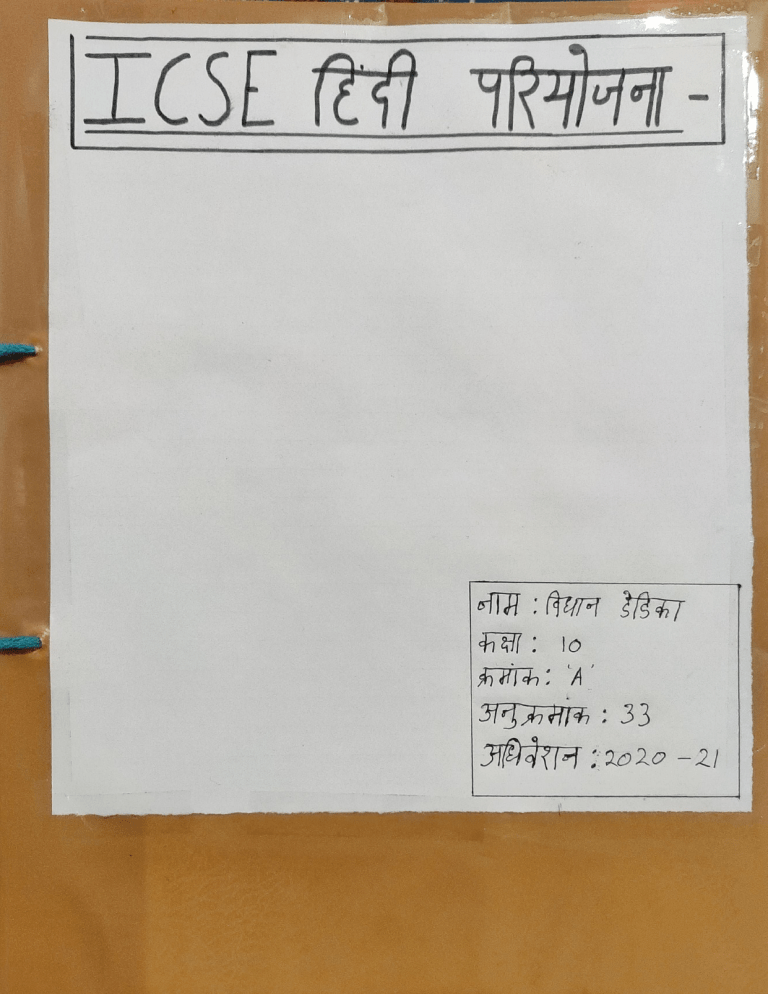 ICSE हिंदी परियोजना -
नाम : विधान डेडिका
कक्षा : 10
क्रमांक : 'A'
अनुक्रमांक : 33
अधिवेशन : 2020 - 21